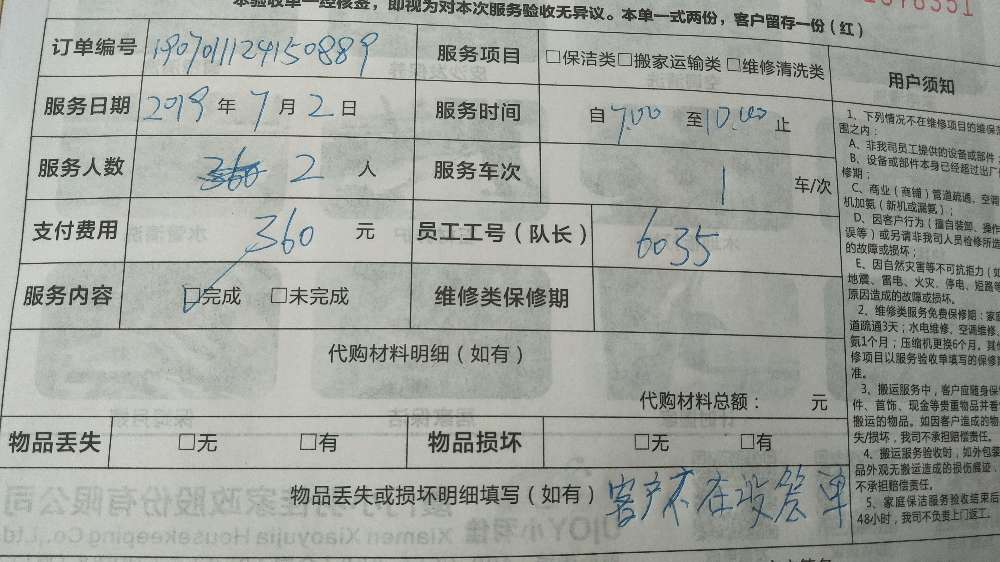 本验收单一经核签，即视为对本次服务验收无异议。本单一式两份，客户留存一份（红）
订单编号 190701124150889 服务项目 □保洁类□搬家运输类 □维修清洗类
服务日期 2019 年 7 月 2 日 服务时间 自 7:00 至 10:00 止
服务人数 2 人 服务车次 1 车/次
支付费用 360 元 员工工号（队长） 6035
服务内容 □完成 □未完成 维修类保修期
代购材料明细（如有）
代购材料总额： 元
物品丢失 □无 □有 物品损坏 □无 □有
物品丢失或损坏明细填写（如有） 客户不在没签单
用户须知
1、下列情况不在维修项目的维保
围之内；
A、非我司员工提供的设备或部件
B、设备或部件本身已经超过出厂
修期；
C、商业（商铺）管道疏通、空调
机加氨（新机或漏氨）；
D、因客户行为（擅自装卸、操作
误等）或另请非我司人员检修所造
的故障或损坏；
E、因自然灾害等不可抗拒力（如
地震、雷电、火灾、停电、短路等
原因造成的故障或损坏。
2、维修类服务免费保修期：家庭
道疏通3天；水电维修、空调维修、
氨1个月；压缩机更换6个月。其他
修项目以服务验收单填写的保修期
准。
3、搬运服务中，客户应随身保
件、首饰、现金等贵重物品并看
搬运的物品。如因客户造成的物品
失/损坏，我司不承担赔偿责任。
4、搬运服务验收时，如外包装
品外观无搬运造成的损伤痕迹，
不承担赔偿责任。
5、家庭保洁服务验收结束后
48小时，我司不负责上门返工。